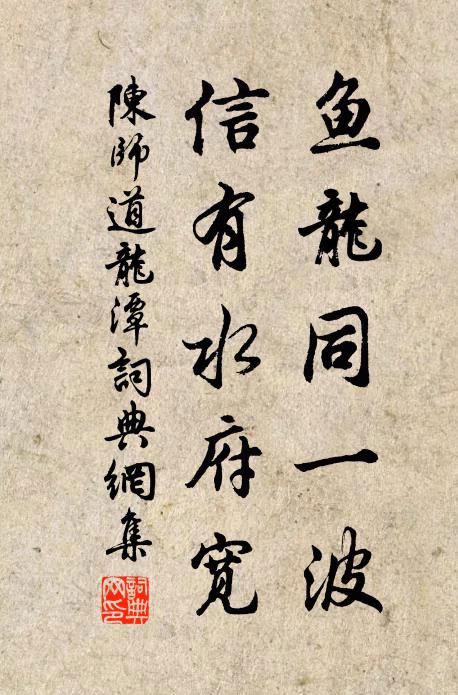 鱼龍同一波
信有水府寬
陳師道龍潭詞典網集
詞典網印